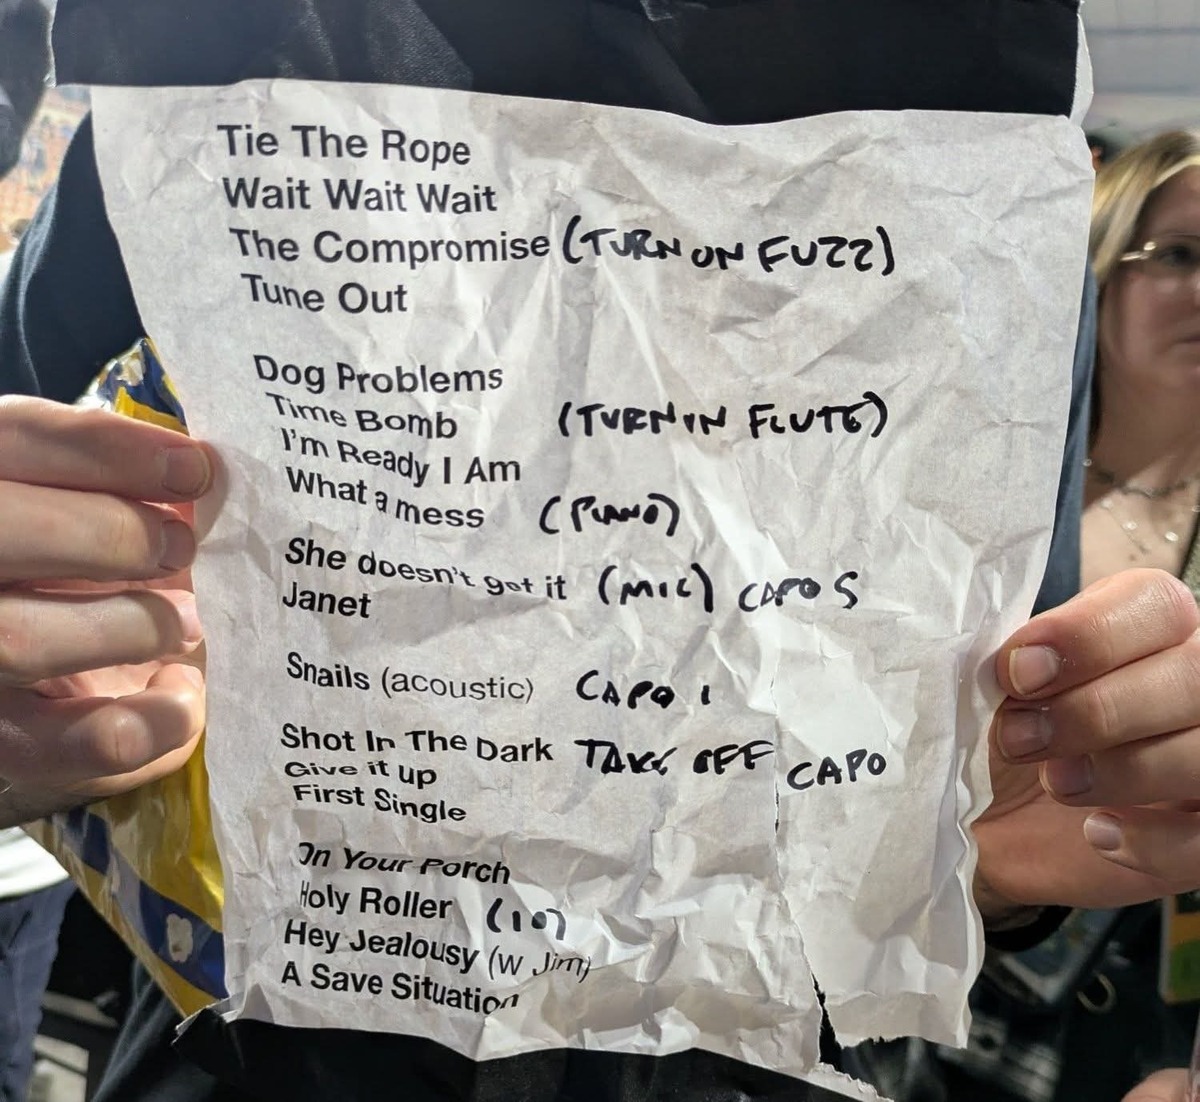 Tie The Rope
Wait Wait Wait
The Compromise (TURN ON FUZZ)
Tune Out
Dog Problems
Time Bomb (TURN IN FLUTE)
I'm Ready I Am
What a mess (PIANO)
She doesn't get it (MIC) CAPO 5
Janet
Snails (acoustic) CAPO 1
Shot In The Dark TAKE OFF CAPO
Give it up
First Single
On Your Porch
Holy Roller (10)
Hey Jealousy (w Jim)
A Save Situation